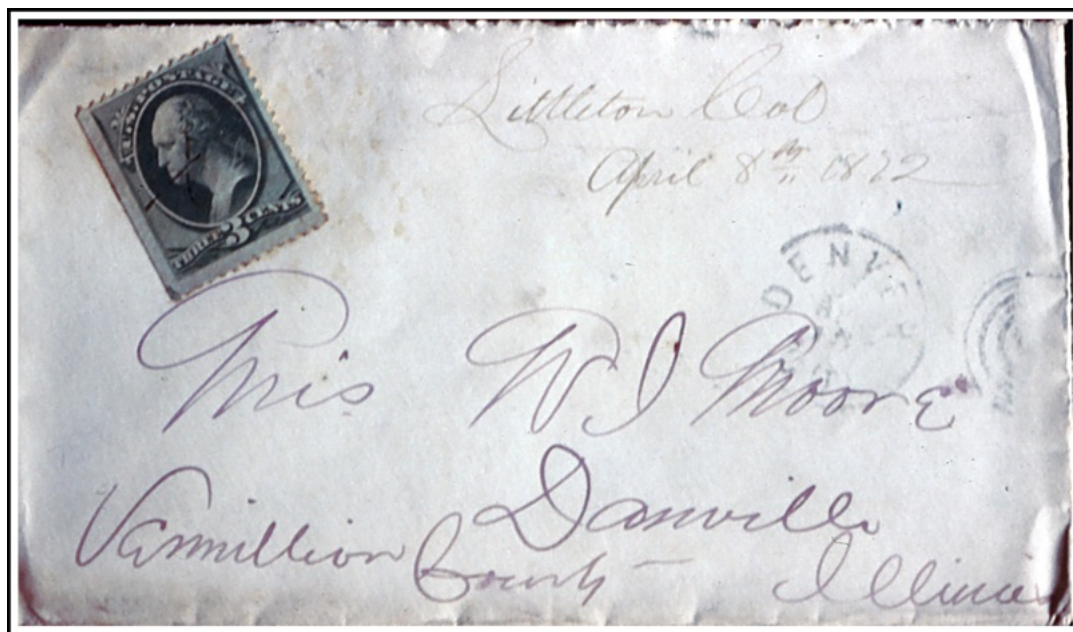 U.S. POSTAGE
THREE 3 CENTS
Littleton Col
April 8th 1822
DENVE
Mis W J Moore
Danville
Vermillion County Illinois